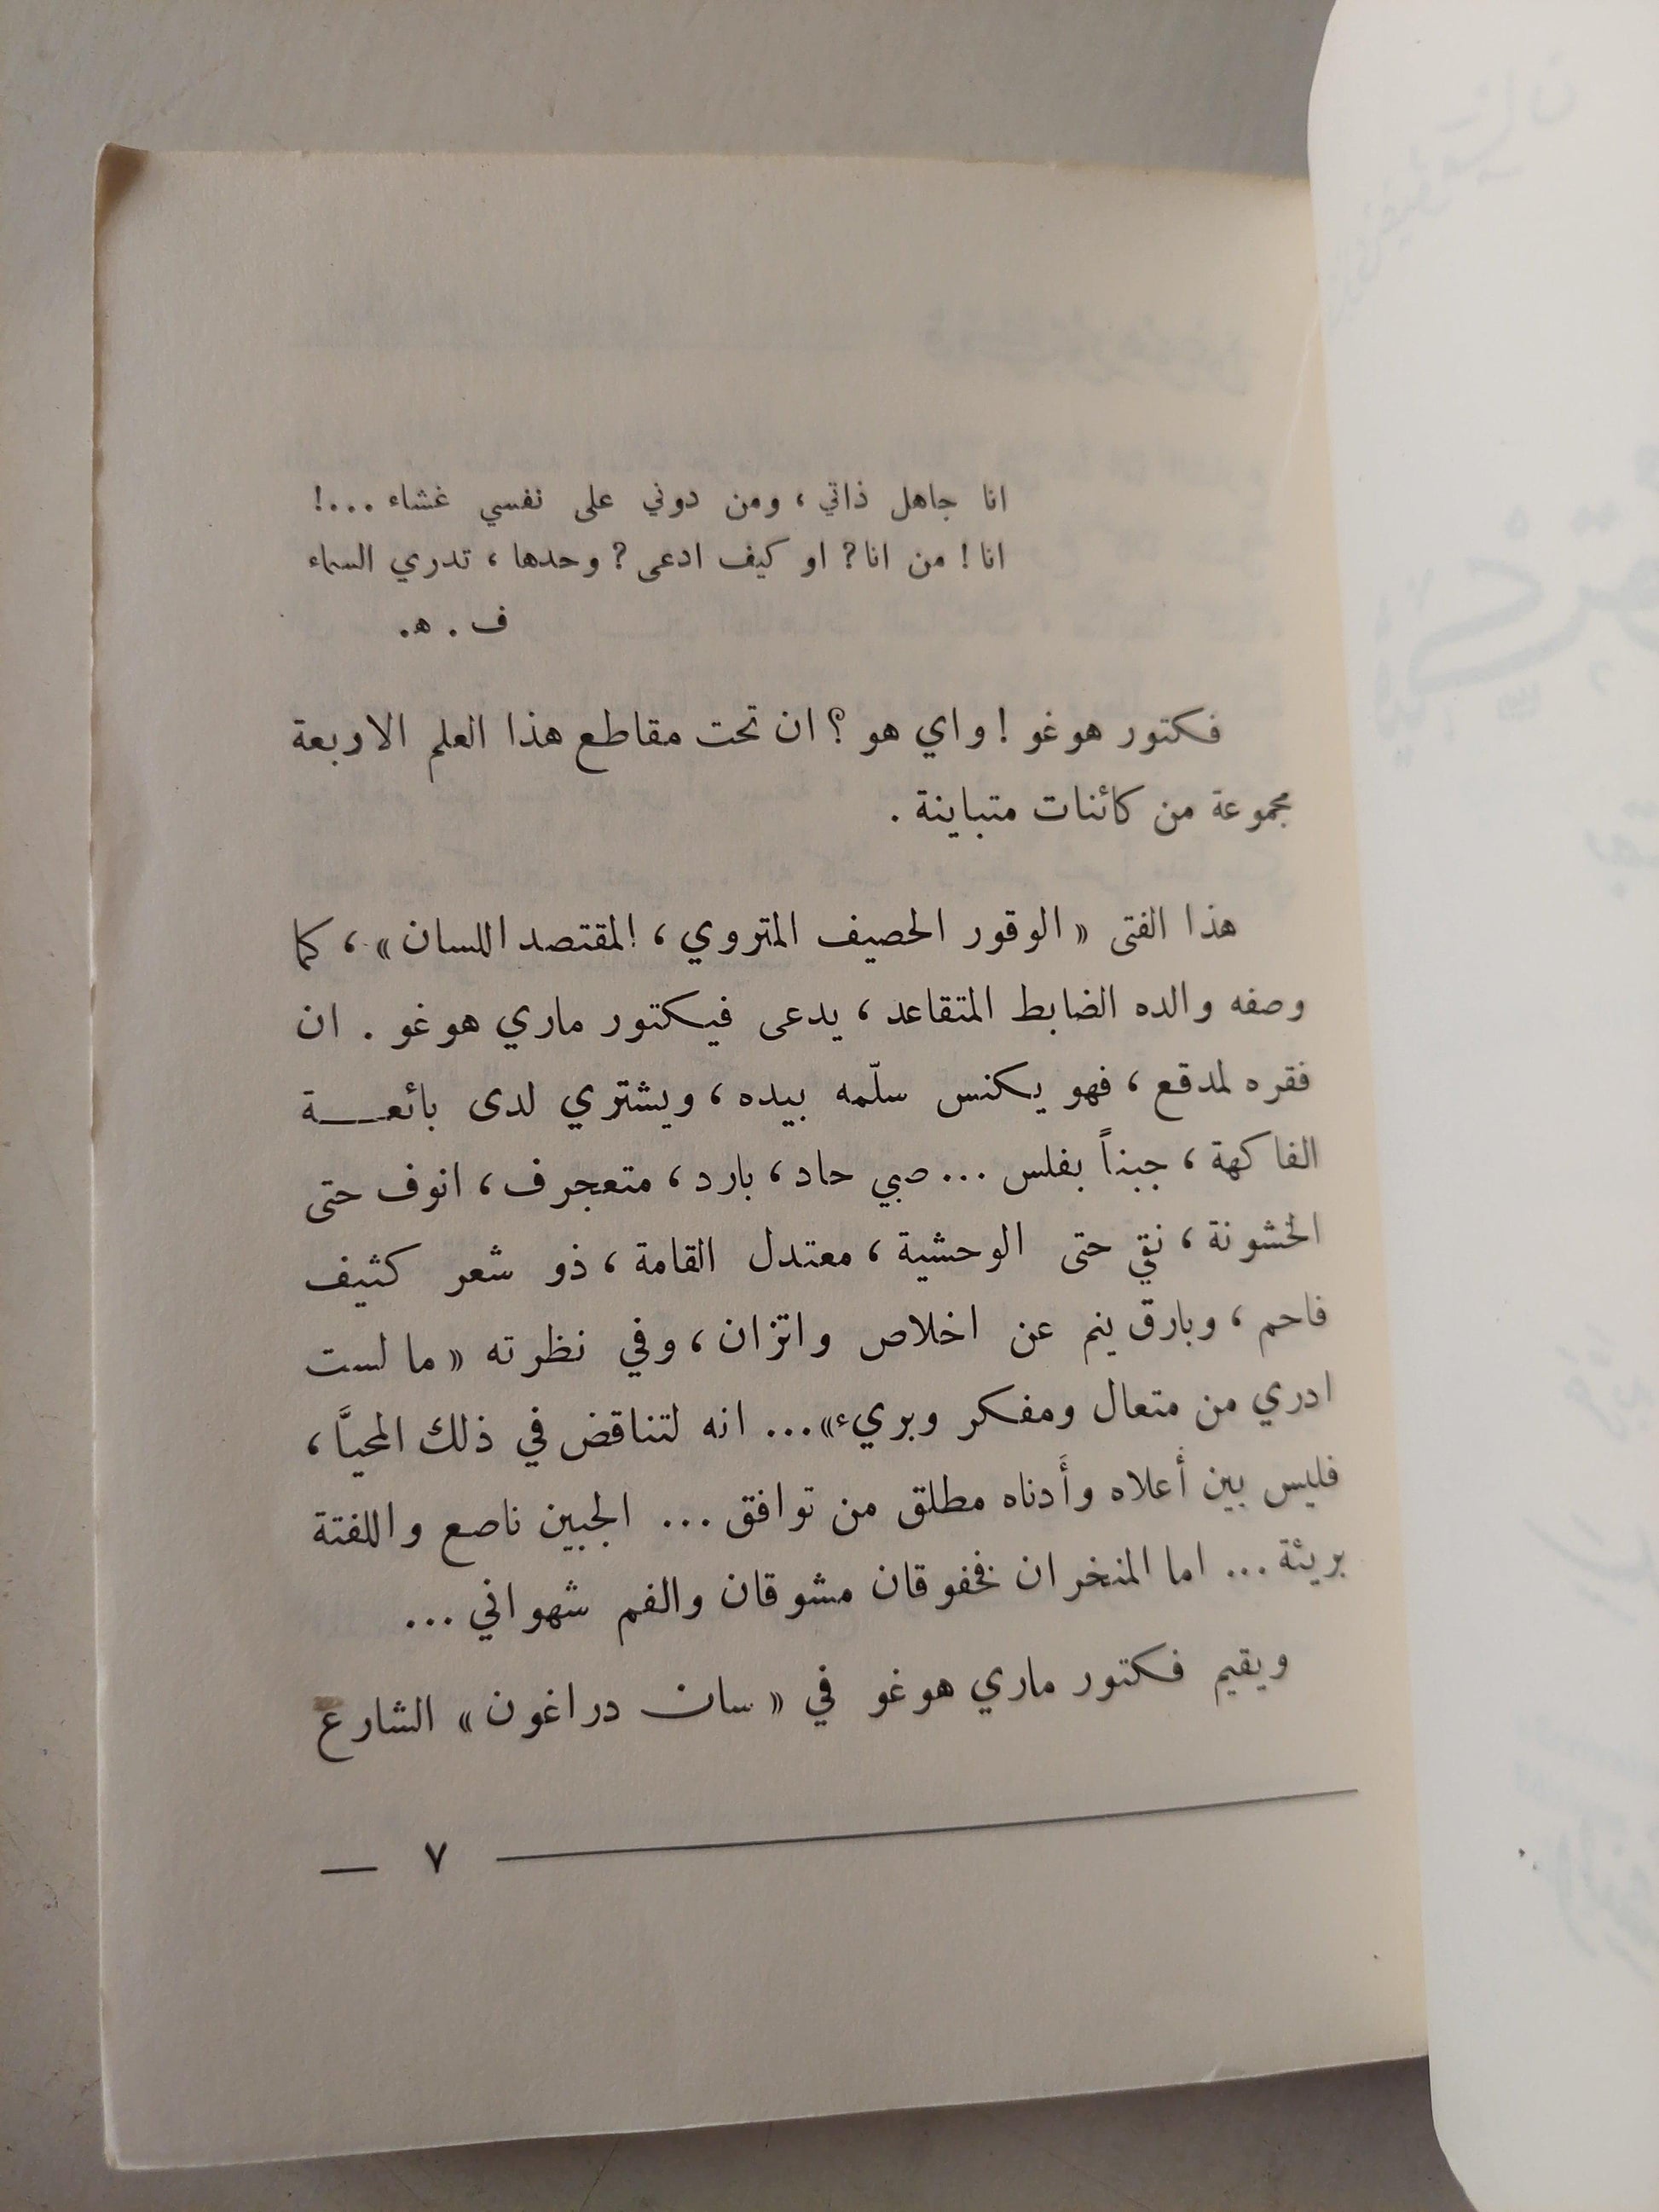 انا جاهل ذاتي ، ومن دوني على نفسي غشاء ...!
انا ! من انا ? او كيف ادعى ? وحدها ، تدري السماء
ف . ه.
فكتور هوغو ! واي هو ؟ ان تحت مقاطع هذا العلم الاربعة
مجموعة من كائنات متباينة .
هذا الفتى « الوقور الحصيف المتروي ، المقتصد اللسان » ، كما
وصفه والده الضابط المتقاعد ، يدعى فيكتور ماري هوغو . ان
فقره لمدقع ، فهو يكنس سلّمه بيده ، ويشتري لدى بائعــة
الفاكهة ، جبناً بفلس ... صبي حاد ، بارد ، متعجرف ، انوف حتى
الخشونة ، نقي حتى الوحشية ، معتدل القامة ، ذو شعر كثيف
فاحم ، وبارق ينم عن اخلاص واتزان ، وفي نظرته « ما لست
ادري من متعال ومفكر وبريء» ... انه لتناقض في ذلك المحيَّا ،
فليس بين أعلاه وأدناه مطلق من توافق ... الجبين ناصع واللفتة
بريئة ... اما المنخران فخفوقان مشوقان والفم شهواني ...
ويقيم فكتور ماري هوغو في « سان دراغون » الشارع
٧